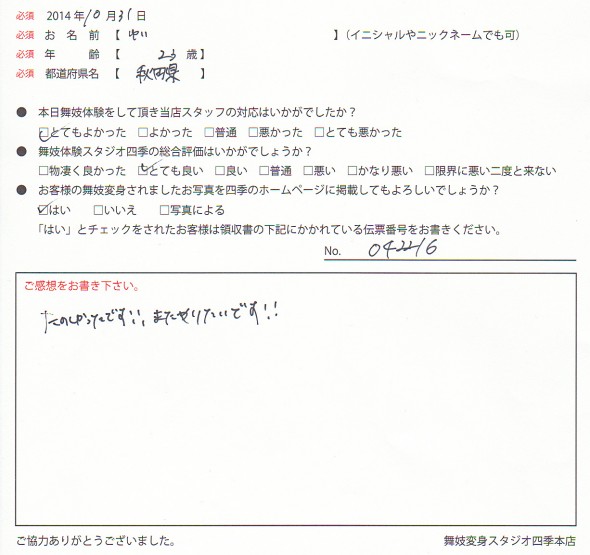 必須 2014年10月31日
必須 お名前【 ゆい 】(イニシャルやニックネームでも可)
必須 年齢【 23歳】
必須 都道府県名【 秋田県 】
● 本日舞妓体験をして頂き当店スタッフの対応はいかがでしたか?
☑とてもよかった □よかった □普通 □悪かった □とても悪かった
● 舞妓体験スタジオ四季の総合評価はいかがでしょうか?
□物凄く良かった ☑とても良い □良い □普通 □悪い □かなり悪い □限界に悪い二度と来ない
● お客様の舞妓変身されましたお写真を四季のホームページに掲載してもよろしいでしょうか?
☑はい □いいえ □写真による
「はい」とチェックをされたお客様は領収書の下記にかかれている伝票番号をお書きください。
No. 042216
ご感想をお書き下さい。
たのしかったです!!、またやりたいです!!
ご協力ありがとうございました。 舞妓変身スタジオ四季本店